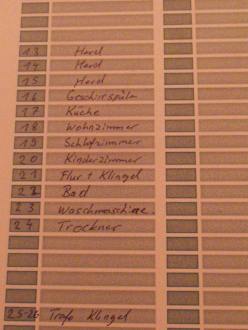 13 Herd
14 Herd
15 Herd
16 Geschirrspüler
17 Küche
18 Wohnzimmer
19 Schlafzimmer
20 Kinderzimmer
21 Flur + Klingel
22 Bad
23 Waschmaschine
24 Trockner
25-26 Trafo Klingel